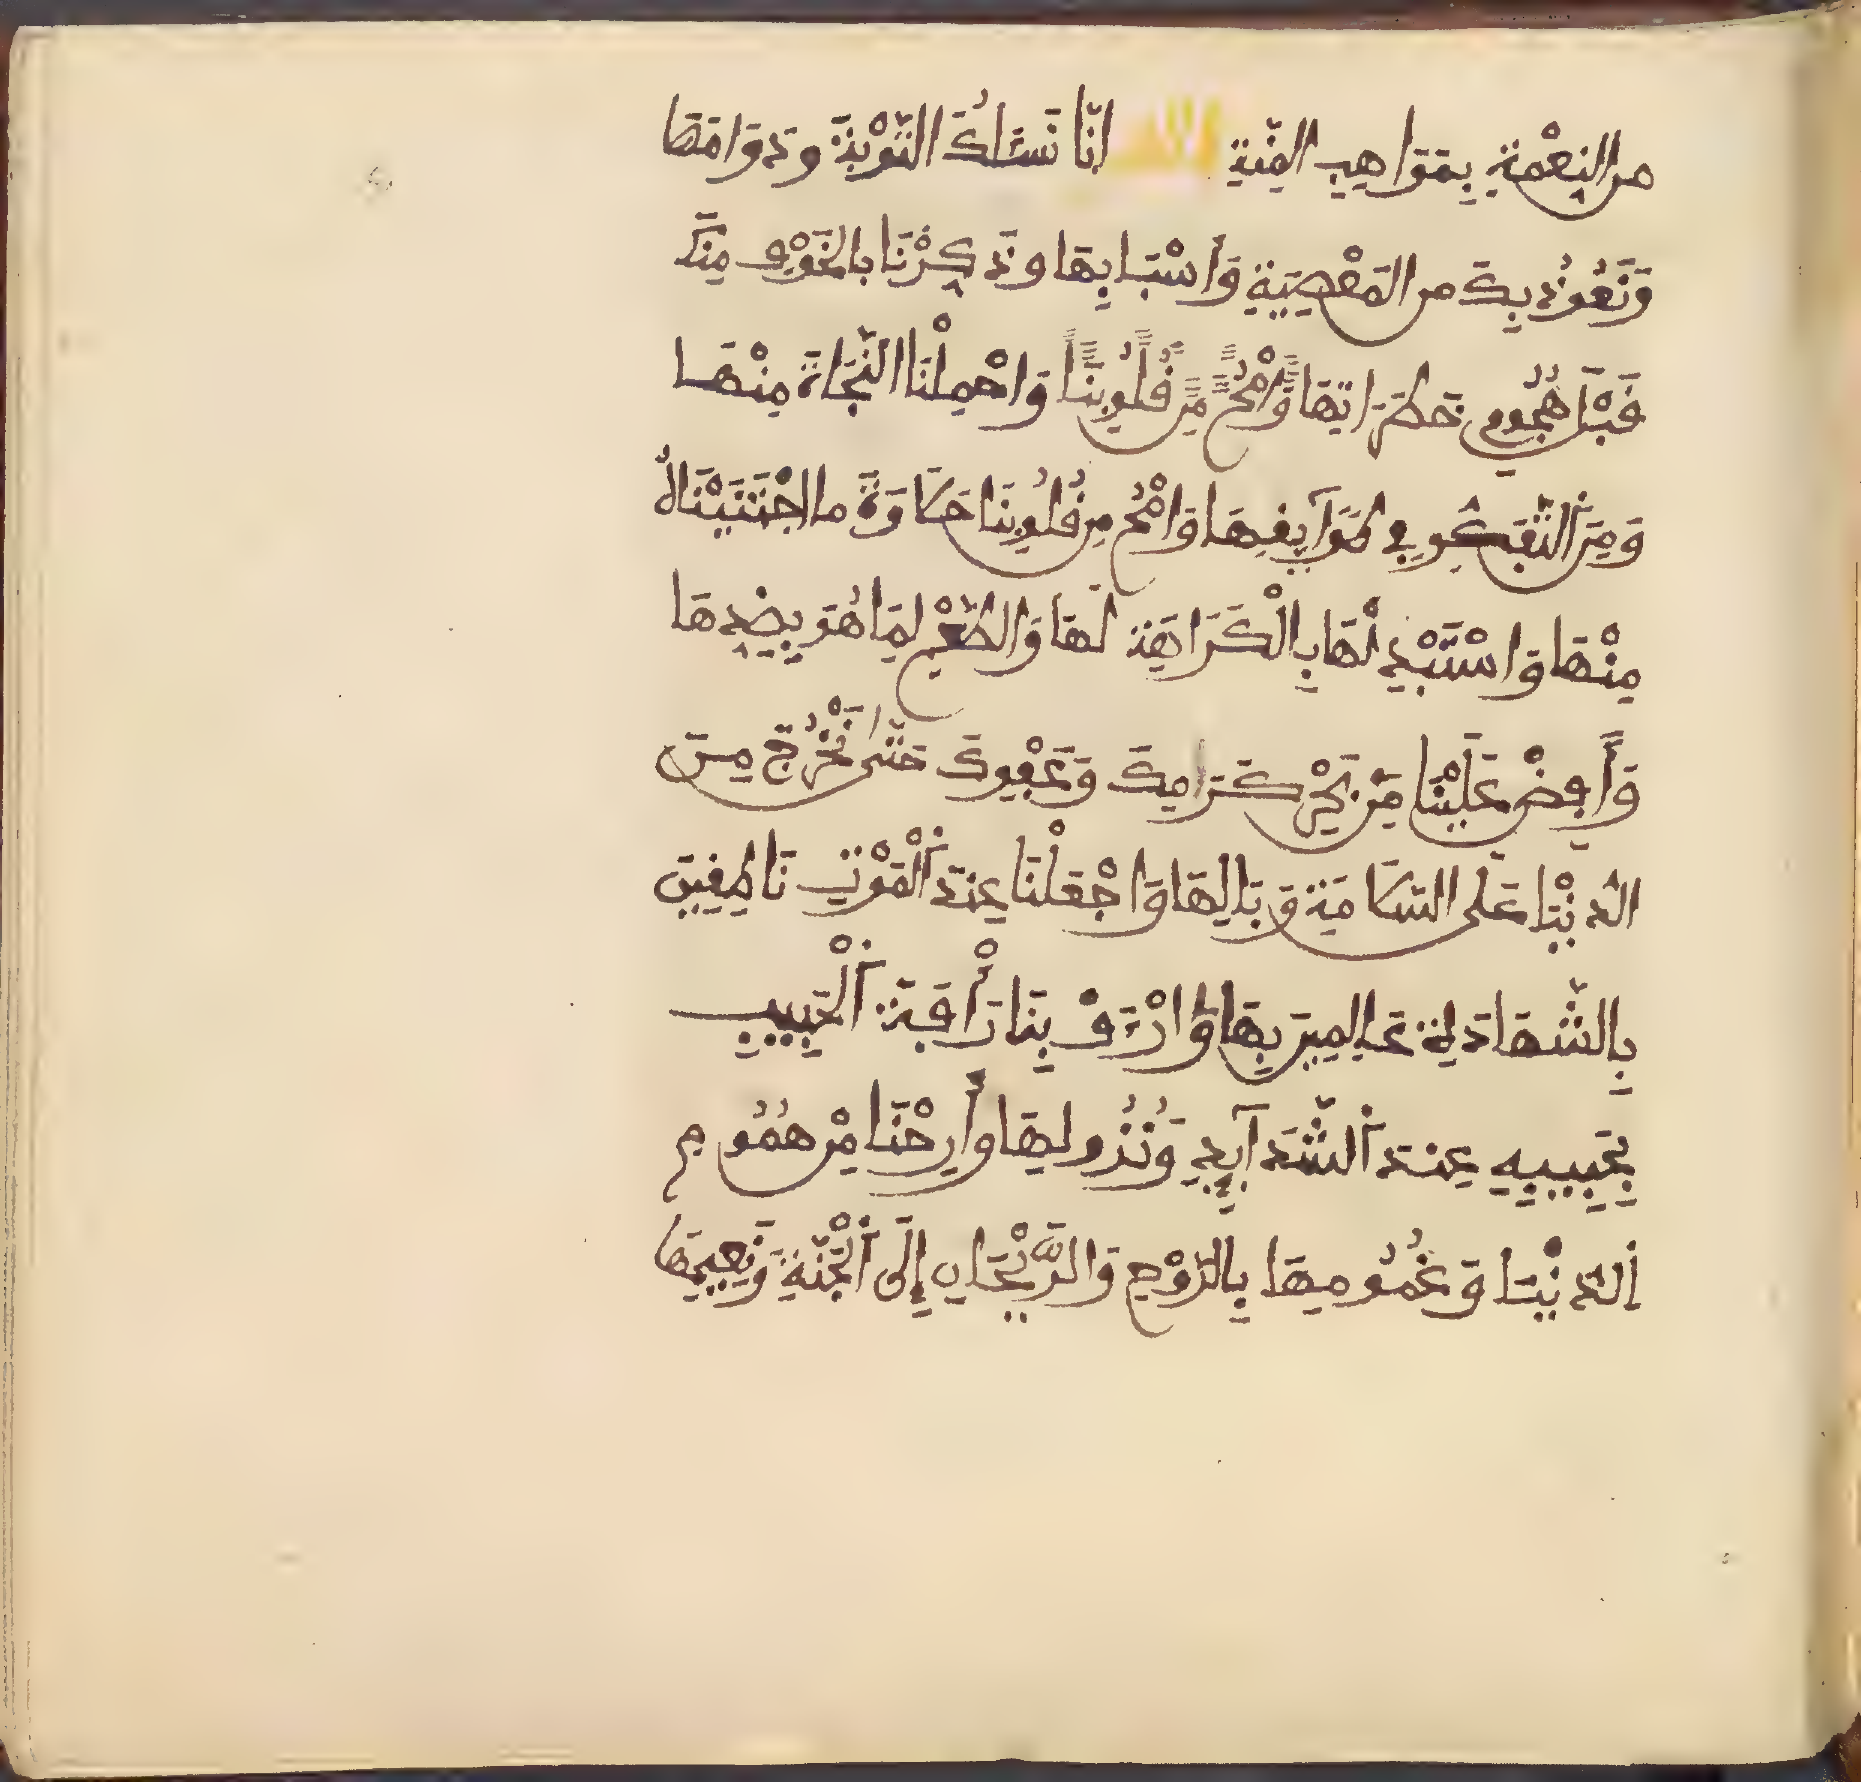 مِنَ النِّعْمَةِ بِمَوَاهِبِ الْمِنَّةِ اللهم اِنَّا نَسْـَٔلُكَ التَّوْبَةَ وَدَوَامَهَا
وَنَعُوذُ بِكَ مِنَ الْمَعْصِيَةِ وَأَسْبَابِهَا وَذَكِّرْنَا بِالْخَوْفِ مِنْكَ
قَبْلَ هُجُومِ خَطَرَاتِهَا وَامْحُ مِنْ قُلُوبِنَا وَاحْمِلْنَا النَّجَاةَ مِنْهَا
وَمِنَ التَّفَكُّرِ فِي طَوَآئِفِهَا وَامْحُ مِنْ قُلُوبِنَا حَلَاوَةَ مَا اجْتَنَيْنَاهُ
مِنْهَا وَاسْتَبْدِلْهَا بِالْكَرَاهَةِ لَهَا وَالطَّعْمِ لِمَا هُوَ بِضِدِّهَا
وَأَفِضْ عَلَيْنَا مِنْ بَحْرِ كَرَمِكَ وَعَفْوِكَ حَتَّى نَخْرُجَ مِنَ
الدُّنْيَا عَلَى السَّلَامَةِ وَبَالِهَا وَاجْعَلْنَا عِنْدَ الْمَوْتِ نَاطِقِينَ
بِالشَّهَادَةِ عَالِمِينَ بِهَا وَارْءَفْ بِنَا رَأْفَةَ الْحَبِيبِ
بِحَبِيبِهِ عِنْدَ الشَّدَآئِدِ وَنُزُولِهَا وَأَرِحْنَا مِنْ هُمُومِ
الدُّنْيَا وَغُمُومِهَا بِالرَّوْحِ وَالرَّيْحَانِ إِلَى الْجَنَّةِ وَنَعِيمِهَا